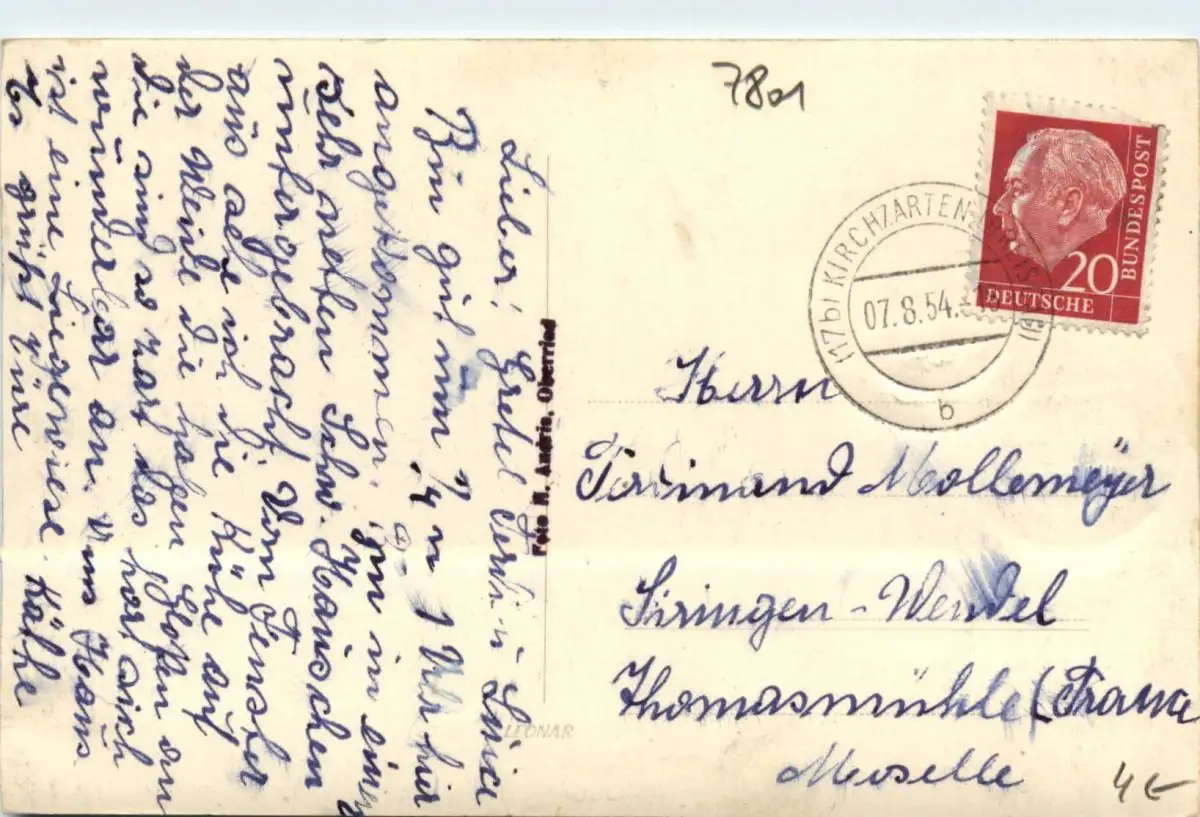 7801
Lieber! Gretel Luise
Bin gut um 1/4 n 1 Uhr hier
angekommen. Bin in einem
sehr netten Schw. Häuschen
untergebracht. Vom Fenster
aus seh ich die Kühe auf
der Weide die haben Glocken an
die sind so zart das hört sich
wunderbar an. Ums Haus
ist eine Liegewiese.
Es grüßt Käthe
Foto W. Andris, Oberried
LEONAR
BUNDESPOST
20
DEUTSCHE
(17b) KIRCHZARTEN
07.8.54.
b
Herrn
Ferdinand Mollemeyer
Siringen-Wendel
Thomasmühle (France
Moselle
4€